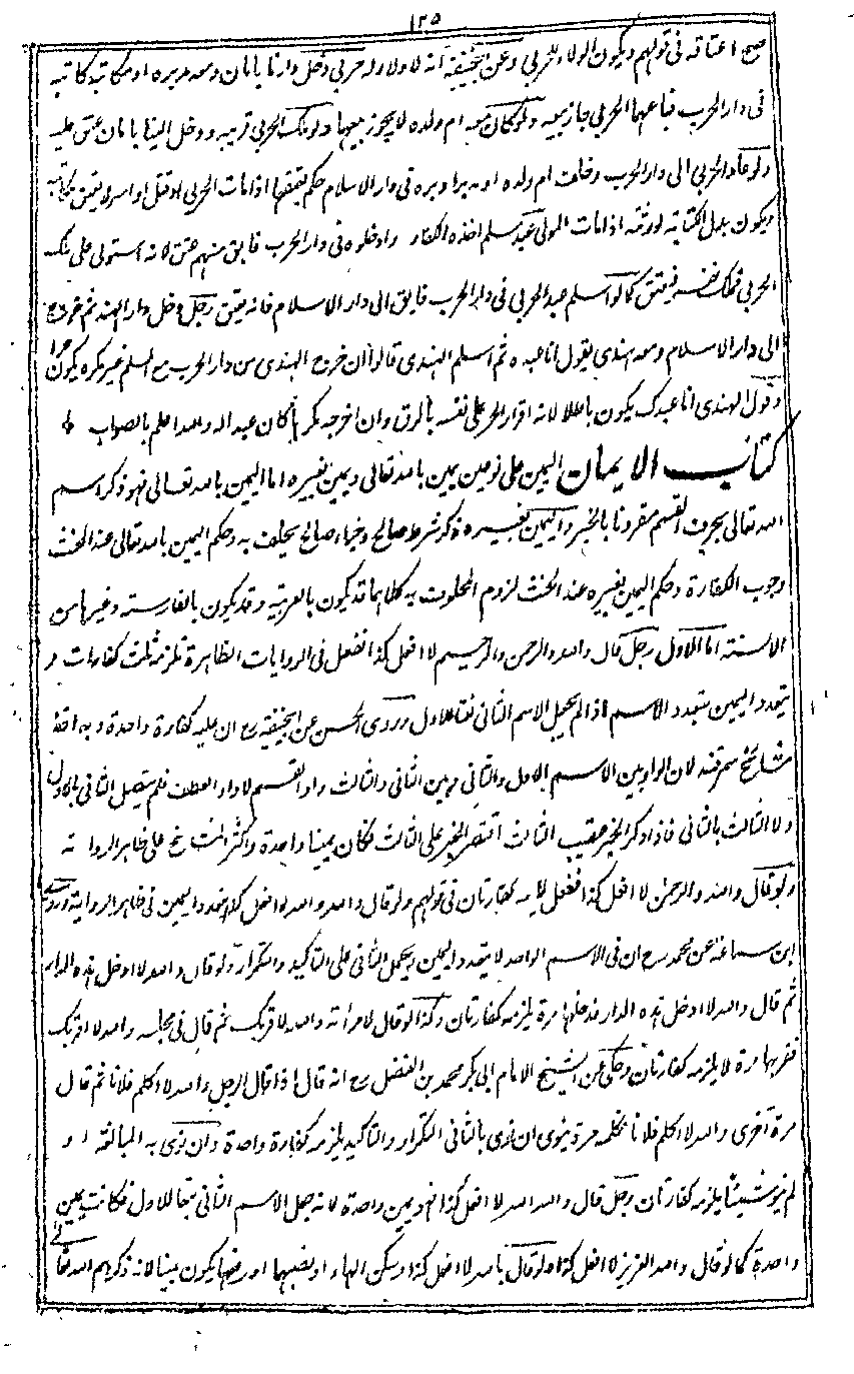 ١٢٥
صح اعتاقه فى قولهم ويكون الولاء للحربى وعن ابيحنيفة انه لا ولاء له حربى دخل دارنا بامان ومعه مدبره او مكاتبه كاتبه
فى دار الحرب فباعهما الحربى جاز بيعه ولو كان معه ام ولده لا يجوز بيعها ولو ملك الحربى قريبه ودخل الينا بامان عتق عليه
ولو عاد الحربى الى دار الحرب وخلف ام ولده او مدبرا دبره فى دار الاسلام حكم بعتقها اذا مات الحربى او قتل او اسر ولا يعتق مكاتبه
ويكون بدل الكتابة لورثته اذا مات المولى عبد مسلم اخذه الكفار وادخلوه فى دار الحرب فابق منهم عتق لانه استولى على ملك
الحربى فملك نفسه فيعتق كما لو اسلم عبد الحربى فى دار الحرب فابق الى دار الاسلام فانه يعتق رجل دخل دار الهند ثم خرج
الى دار الاسلام ومعه هندى يقول انا عبده ثم اسلم الهندى قالوا ان خرج الهندى من دار الحرب مع المسلم غير مكره يكون حرا
وقول الهندى انا عبدك يكون باطلا لانه اقرار الحر على نفسه بالرق وان اخرجه مكرها كان عبدا له والله اعلم بالصواب
كتاب الايمان اليمين على نوعين يمين بالله تعالى ويمين بغيره اما اليمين بالله تعالى فهو ذكر اسم
الله تعالى بحرف القسم مقرونا بالخبر واليمين بغيره ذكر شرط صالح وجزاء صالح يحلف به وحكم اليمين بالله تعالى عند الحنث
وجوب الكفارة وحكم اليمين بغيره عند الحنث لزوم المحلوف به كلاهما قد يكون بالعربية وقد يكون بالفارسية وغيرها من
الالسنة اما الاول رجل قال والله والرحمن والرحيم لا افعل كذا ففعل فى الروايات الظاهرة تلزمه ثلث كفارات و
يتعدد اليمين بتعدد الاسم اذا لم يجعل الاسم الثانى نعتا للاول وروى الحسن عن ابيحنيفة رح ان عليه كفارة واحدة وبه اخذ
مشايخ سمرقند لان الواو بين الاسم الاول والثانى وبين الثانى والثالث واو القسم لا واو العطف فلم يتصل الثانى بالاول
ولا الثالث بالثانى فاذا ذكر الخبر عقيب الثالث اقتصر الخبر على الثالث فكان يمينا واحدة واكثر المشايخ على ظاهر الرواية
ولو قال والله والرحمن لا افعل كذا ففعل يلزمه كفارتان فى قولهم ولو قال والله والله لا افعل كذا يتعدد اليمين فى ظاهر الرواية وروى
ابن سماعة عن محمد رح ان فى الاسم الواحد لا يتعدد اليمين ويحمل الثانى على التاكيد والتكرار ولو قال والله لا ادخل هذه الدار
ثم قال والله لا ادخل هذه الدار فدخلها مرة يلزمه كفارتان وكذا لو قال لامرأته والله لا اقربك ثم قال فى مجلسه والله لا اقربك
فقربها مرة لا يلزمه كفارتان وحكى عن الشيخ الامام ابى بكر محمد بن الفضل رح انه قال اذا قال الرجل والله لا اكلم فلانا ثم قال
مرة اخرى والله لا اكلم فلانا فكلمه مرة ينوى ان نوى بالثانى التكرار والتاكيد يلزمه كفارة واحدة وان نوى به المبالغة او
لم ينو شيئا يلزمه كفارتان رجل قال والله الله لا افعل كذا فهو يمين واحدة لانه جعل الاسم الثانى تبعا للاول فكانت يمين
واحدة كما لو قال والله العزيز لا افعل كذا ولو قال بالله لا افعل كذا وسكن الهاء او نصبها او رفعها يكون يمينا لانه ذكر اسم الله تعالى